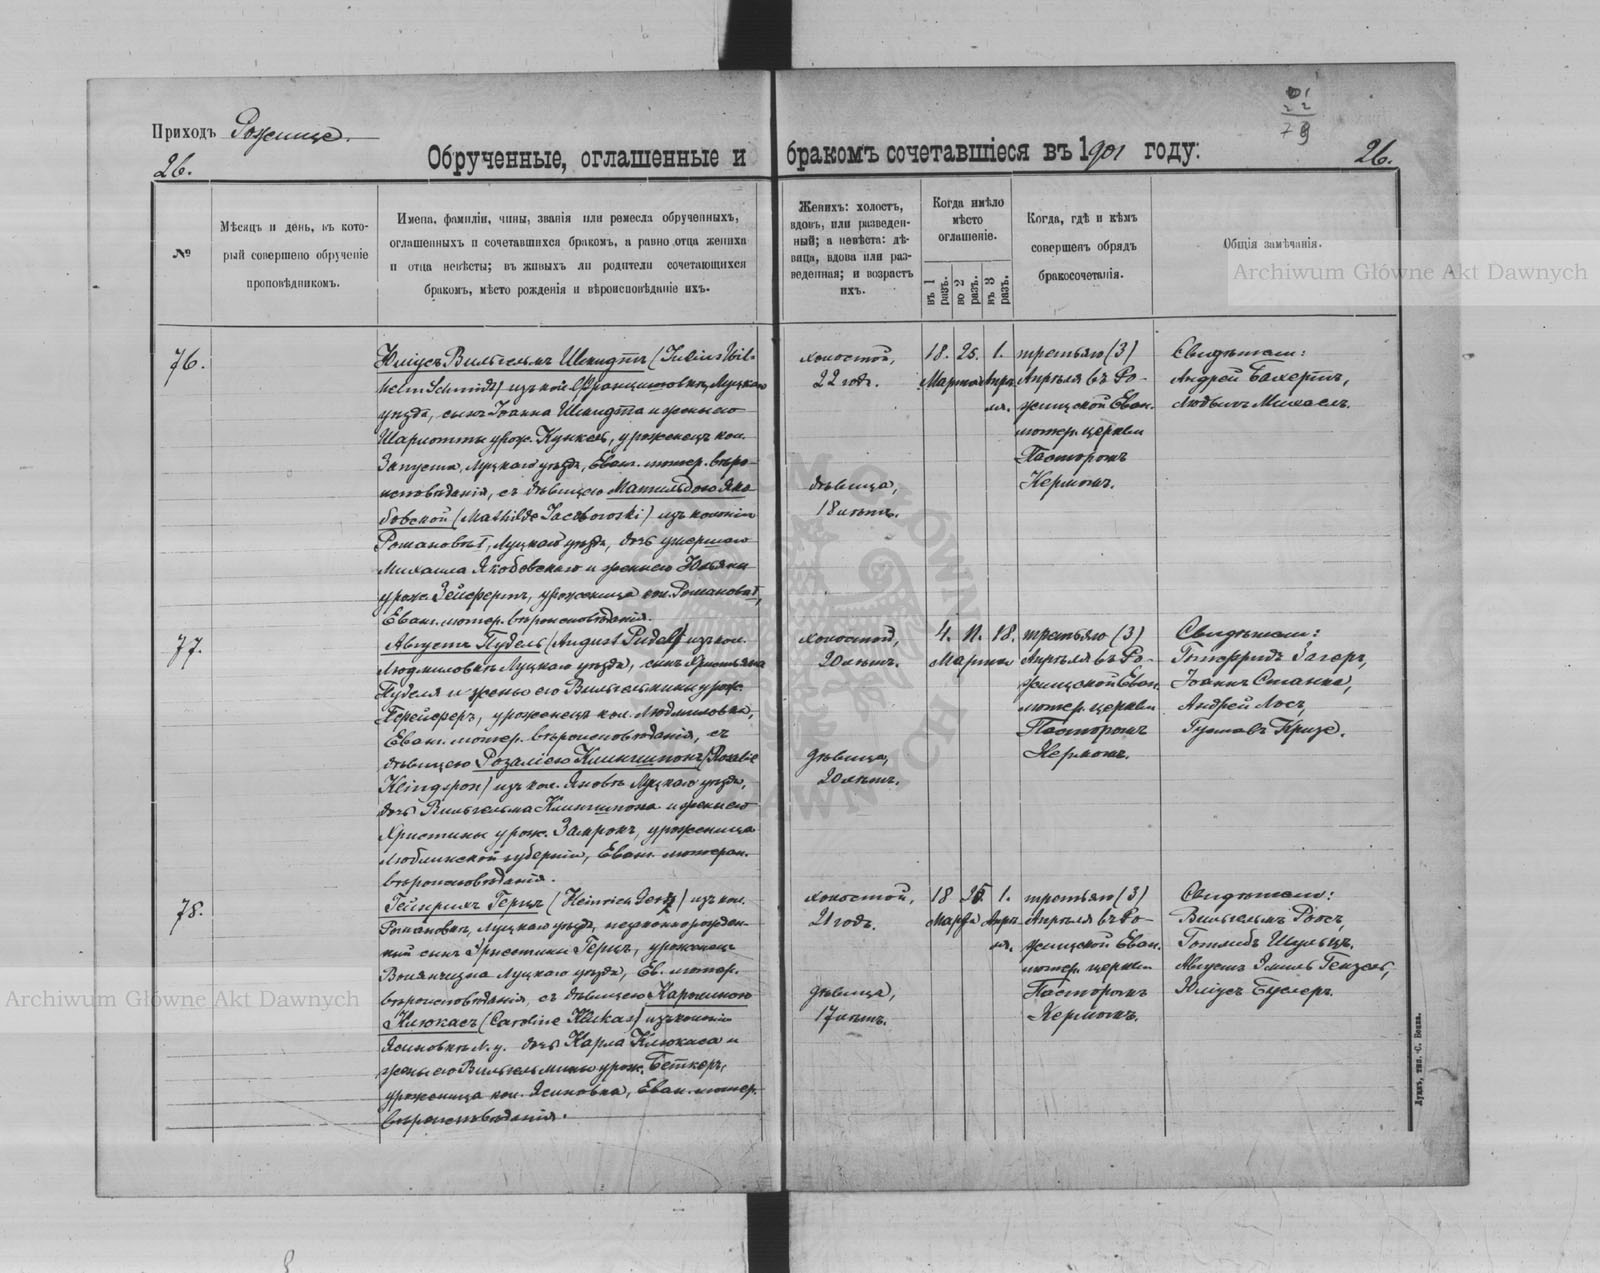 Приходъ Рожище.
26.
Обрученные, оглашенные и бракомъ сочетавшіеся въ 1901 году:
26.
№
Мѣсяцъ и день, въ кото-
рый совершено обрученіе
проповѣдникомъ.
Имена, фамиліи, чины, званія или ремесла обрученныхъ,
оглашенныхъ и сочетавшихся бракомъ, а равно отца жениха
и отца невѣсты; въ живыхъ ли родители сочетающихся
бракомъ, мѣсто рожденія и вѣроисповѣданіе ихъ.
Женихъ: холостъ,
вдовъ, или разведен-
ный; а невѣста: дѣ-
вица, вдова или раз-
веденная; и возрастъ
ихъ.
Когда имѣло
мѣсто
оглашеніе.
въ 1 разъ.
во 2 разъ.
въ 3 разъ.
Когда, гдѣ и кѣмъ
совершенъ обрядъ
бракосочетанія.
Общія замѣчанія.
76.
Юліусъ Вильгельмъ Шмидтъ (Julius Wil-
helm Schmidt) изъ кол. Францишовки, Луцкаго
уѣзда, сынъ Іоанна Шмидта и жены его
Шарлотты урож. Кункель, уроженецъ кол.
Запуста, Луцкаго уѣзда, Еван. лютер. вѣро-
исповѣданія, съ дѣвицею Матильдою Яко-
бовской (Mathilde Jacobowski) изъ колоніи
Романовъ I, Луцкаго уѣзда, дочь умершаго
Михаила Якобовскаго и жены его Юльяны
урож. Зейфертъ, уроженица кол. Романовъ I,
Еван. лютер. вѣроисповѣданія.
холостой,
22 годъ.
дѣвица,
18 лѣтъ.
18. 25. 1.
Марта Апрѣ-
ля.
третьяго (3)
Апрѣля въ Ро-
жищской Еван.
лютер. церкви
Пасторомъ
Кермомъ.
Свидѣтели:
Андрей Бахертъ,
Людвигъ Михаел.
77.
Августъ Пудель (August Pudel) изъ кол.
Людмиловки Луцкаго уѣзда, сынъ Христьяна
Пуделя и жены его Вильгельмины урож.
Перейферъ, уроженецъ кол. Людмиловка,
Еван. лютер. вѣроисповѣданія, съ
дѣвицею Розаліею Клингшпонъ (Rosalie
Klingspon) изъ кол. Яновка Луцкаго уѣзда,
дочь Вильгельма Клингшпона и жены его
Христины урож. Замронъ, уроженица
Люблинской губерніи, Еван. лютеран.
вѣроисповѣданія.
холостой,
20 лѣтъ.
дѣвица,
20 лѣтъ.
4. 11. 18.
Марта
третьяго (3)
Апрѣля въ Ро-
жищской Еван.
лютер. церкви
Пасторомъ
Кермомъ.
Свидѣтели:
Готфридъ Загеръ,
Іоаннъ Станке,
Андрей Лосъ,
Густавъ Кризе.
78.
Гейнрихъ Герцъ (Heinrich Gertz) изъ кол.
Романовки, Луцкаго уѣзда, незаконнорожден-
ный сынъ Христины Герцъ, уроженецъ
Волянщизна Луцкаго уѣзда, Ев. лютер.
вѣроисповѣданія, съ дѣвицею Каролиною
Клюкасъ (Caroline Klukas) изъ колоніи
Ясиновки Л. у. дочь Карла Клюкаса и
жены его Вильгельмины урож. Беткеръ,
уроженица кол. Ясиновка, Еван. лютер.
вѣроисповѣданія.
холостой,
21 годъ.
дѣвица,
17 лѣтъ.
18 25 1.
Марта Апрѣ-
ля.
третьяго (3)
Апрѣля въ Ро-
жищской Еван.
лютер. церкви
Пасторомъ
Кермомъ.
Свидѣтели:
Вильгельмъ Роосъ,
Готлибъ Шульцъ.
Августъ Эмиль Гензель,
Юліусъ Буслеръ.
Archiwum Główne Akt Dawnych
Archiwum Główne Akt Dawnych